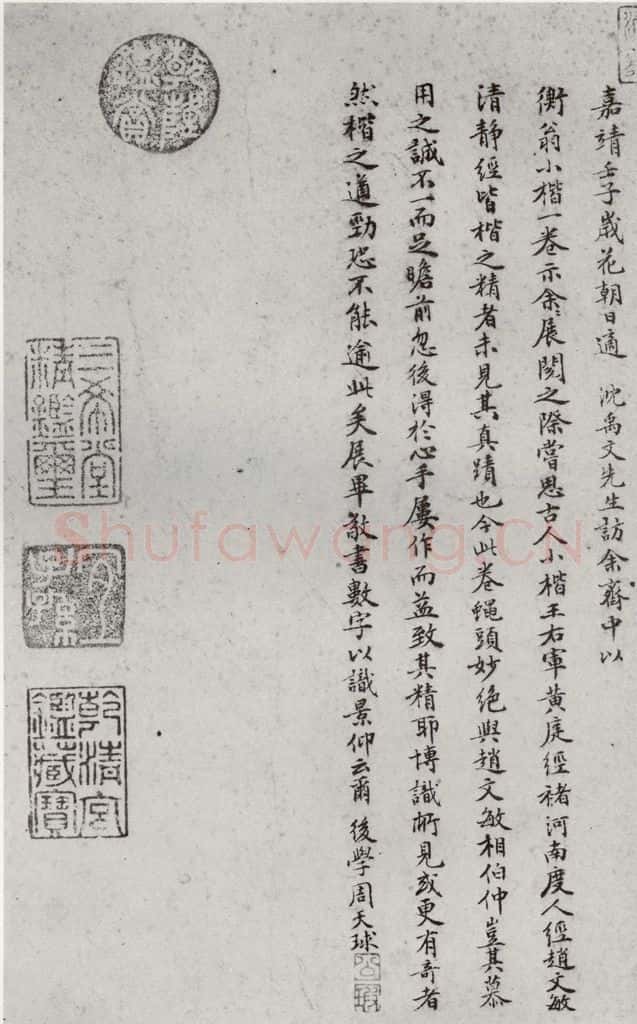 嘉靖壬子歲花朝日適 沈禹文先生訪余齋中以
衡翁小楷一卷示余展閱之際嘗思古人小楷王右軍黃庭經褚河南度人經趙文敏
清靜經皆楷之精者未見其真蹟也今此卷蠅頭妙絕與趙文敏相伯仲豈其慕
用之誠不一而足瞻前忽後得於心手屢作而益致其精耶博識所見或更有奇者
然楷之遒勁恐不能逾此矣展畢敬書數字以識景仰云爾 後學周天球
乾隆鑑賞
三希堂精鑑璽
宜子孫
乾清宮鑑藏寶
Shufawang.CN